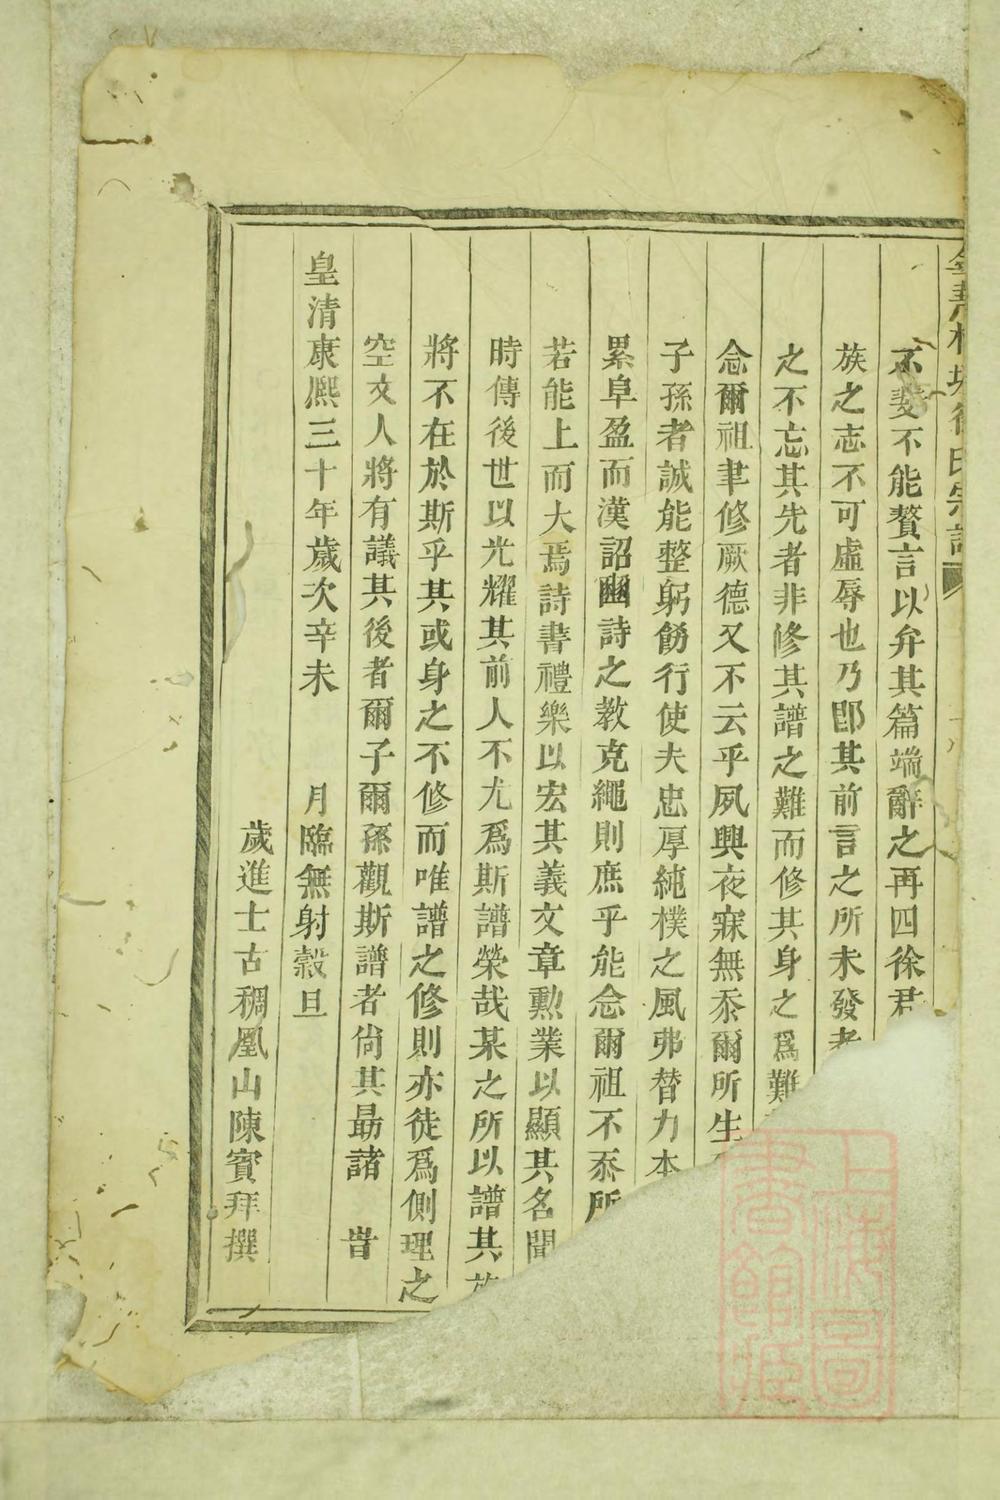 不斐不能贅言以弁其篇端辭之再四徐君
族之志不可虛辱也乃卽其前言之所未發者
之不忘其先者非修其譜之難而修其身之爲難
念爾祖聿修厥德又不云乎夙興夜寐無忝爾所生
子孫者誠能整躬飭行使夫忠厚純樸之風弗替力本
累阜盈而漢詔豳詩之教克繩則庶乎能念爾祖不忝所
若能上而大焉詩書禮樂以宏其義文章勳業以顯其名聞
時傳後世以光耀其前人不尤爲斯譜榮哉某之所以譜其族
將不在於斯乎其或身之不修而唯譜之修則亦徒爲側理之
空文人將有議其後者爾子爾孫觀斯譜者尙其勗諸 旹
皇清康熙三十年歲次辛未 月臨無射穀旦
歲進士古稠凰山陳賓拜撰
上海圖書館藏